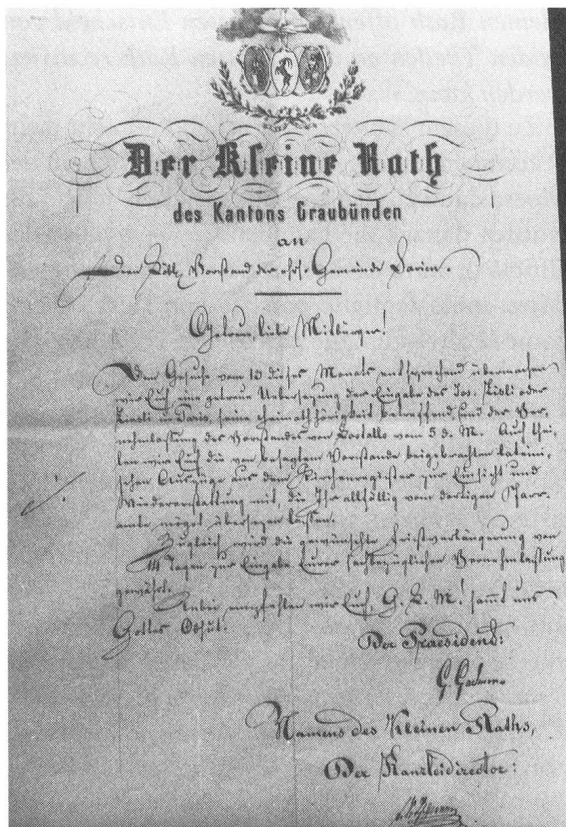 Der Kleine Rath
des Kantons Graubünden
an
den Löbl. Vorstand der Gemeinde
Getreue, liebe Mitbürger!
Dem Gesuche vom 10 dieses Monats entsprechend übermachen
wir Euch eine getreue Uebersezung der Eingabe des Jos.
in Paris, seine Heimathhörigkeit betreffend und der Ver-
nehmlassung des Vorstandes von d. M. Auch thei-
len wir Euch die von besagtem Vorstande beigebrachten lateini-
schen Auszüge aus dem Kirchenregister zur Einsicht und
Wiedererstattung mit, die Ihr allfällig vom dortigen Pfarr-
amte möget übersezen lassen.
Zugleich wird die gewünschte Fristverlängerung von
14 Tagen zur Eingabe Eurer Vernehmlassung
gewährt.
Anbei empfehlen wir Euch, G. L. M! sammt uns
Gottes Obhut.
Der Praesident:
Namens des Kleinen Raths,
Der Kanzleidirector: